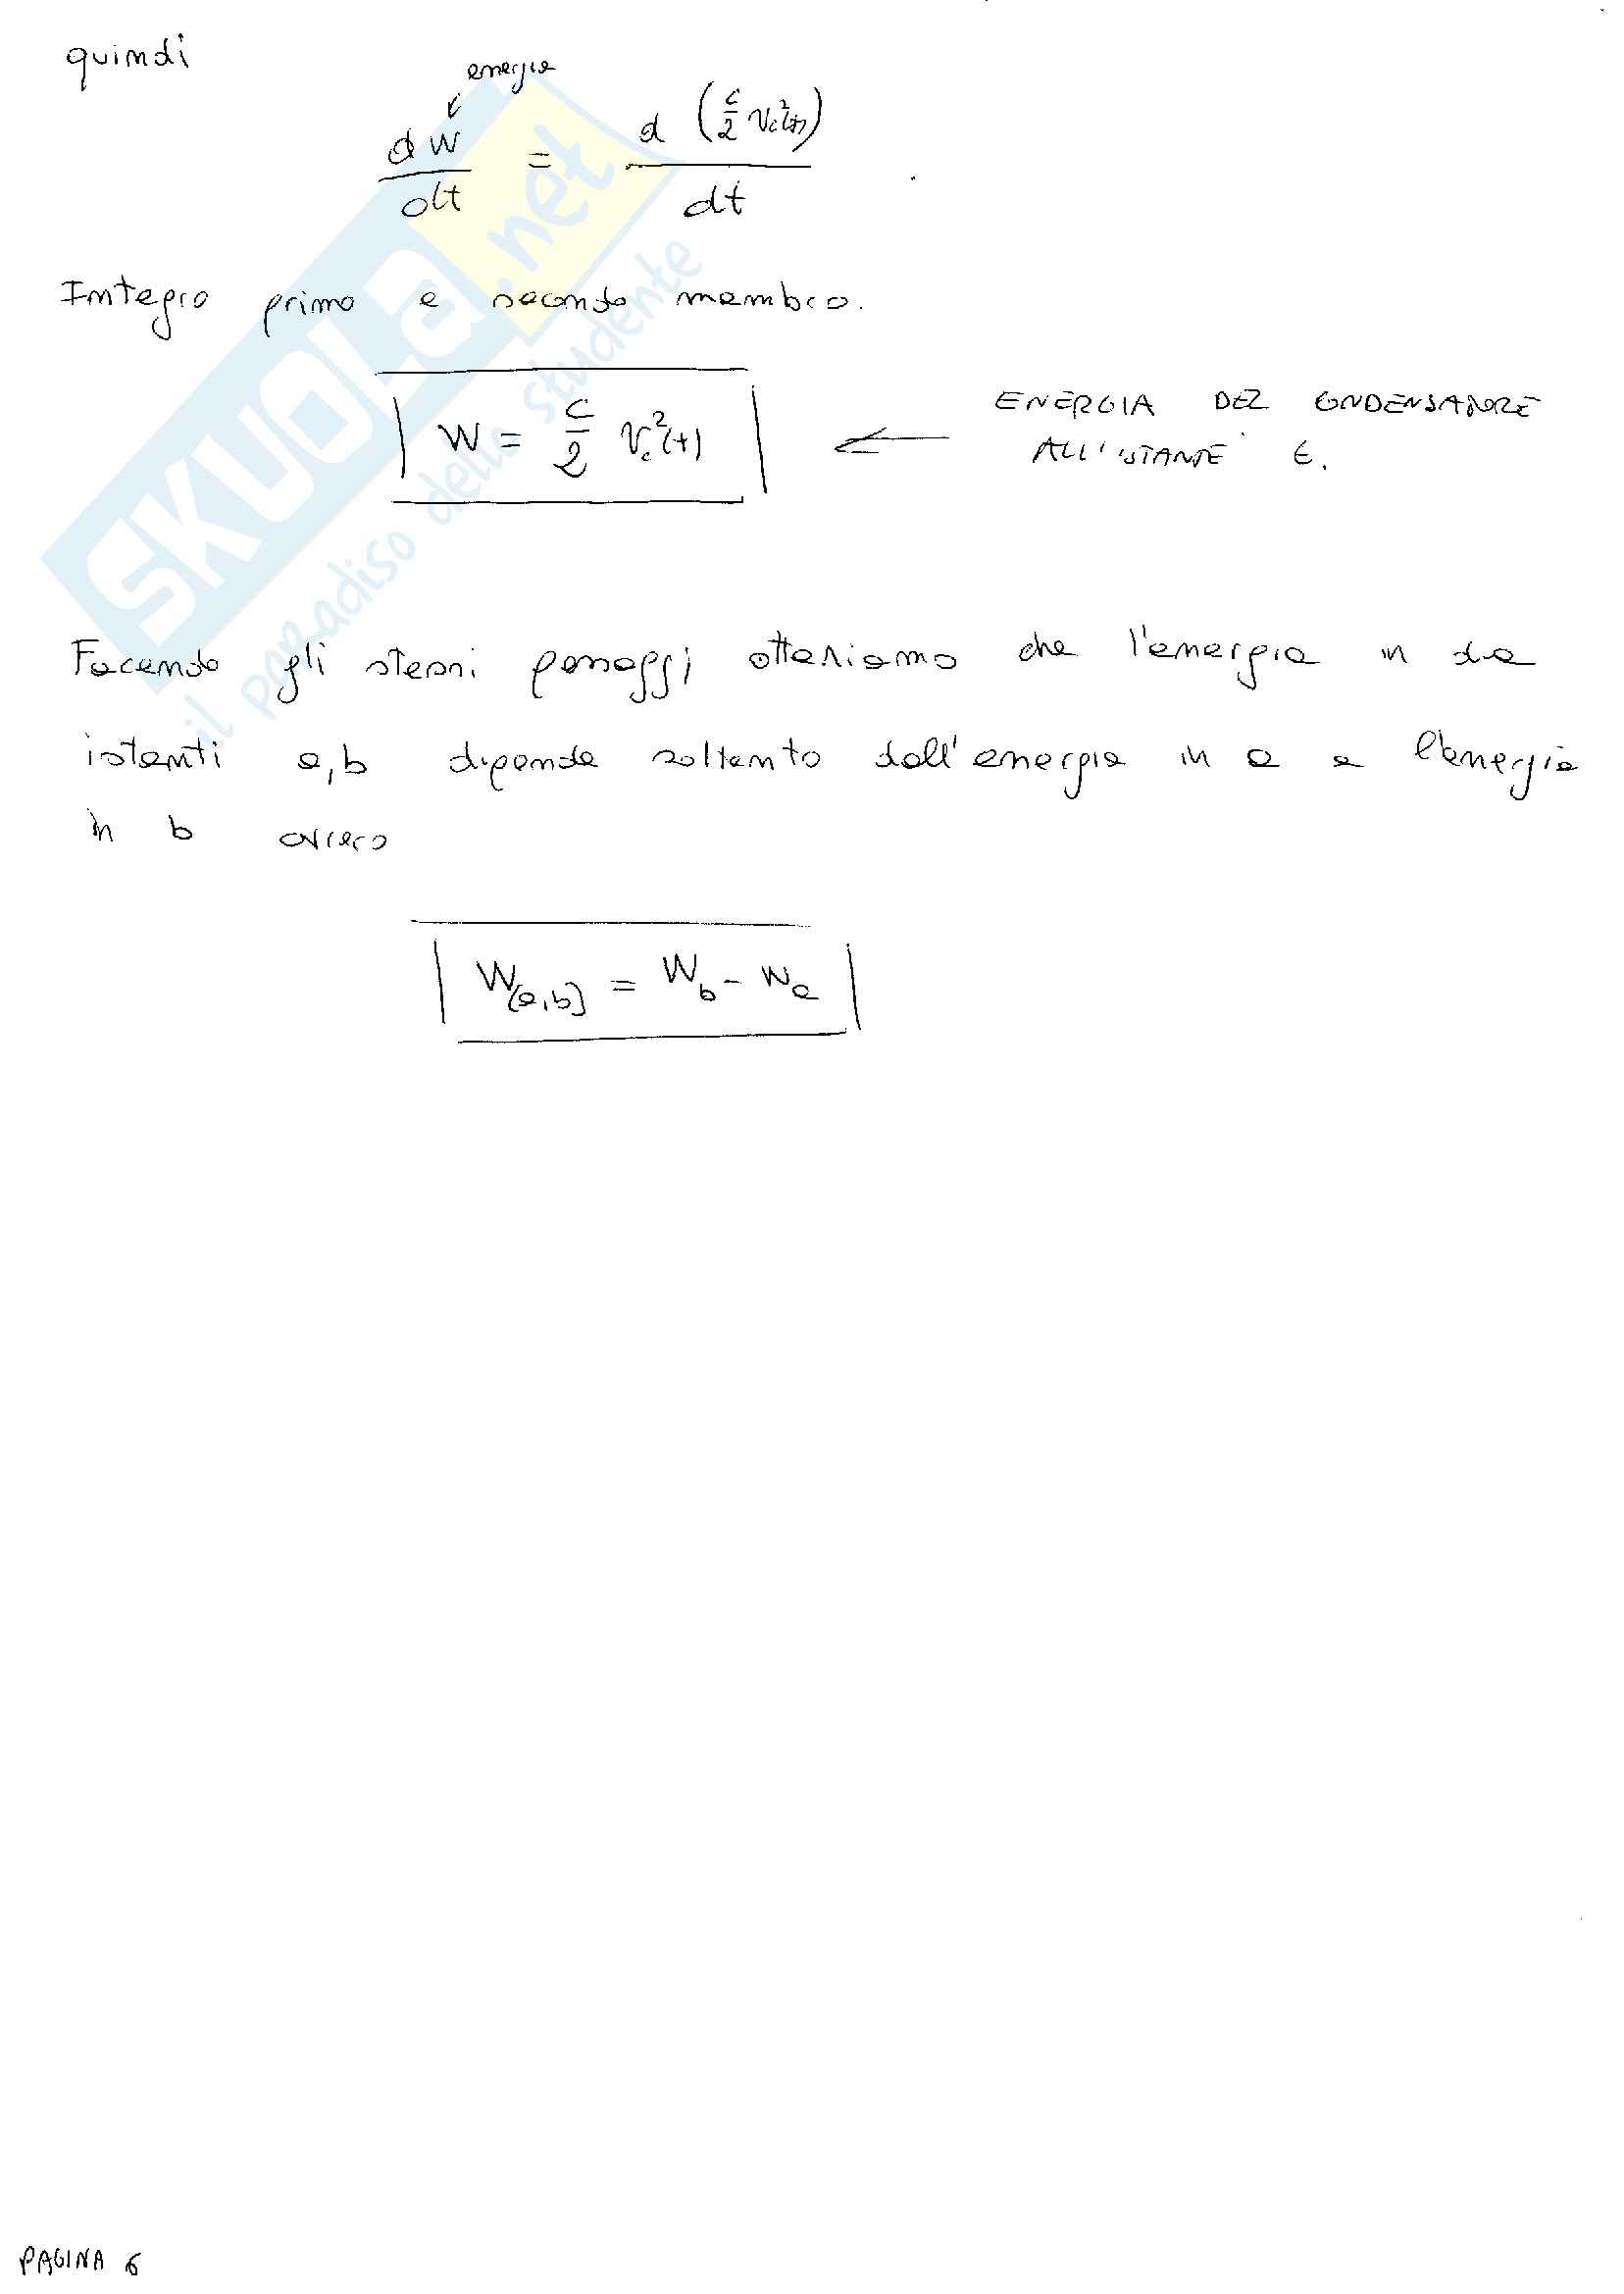 quindi
energia
dW/dt = d (C/2 Vc²(t))/dt
Integro primo e secondo membro.
W = C/2 Vc²(t)
ENERGIA DEL CONDENSATORE
ALL'ISTANTE t.
Facendo gli stessi passaggi otteniamo che l'energia in due
istanti a,b dipende soltanto dall'energia in a e l'energia
in b ovvero
W[a,b] = Wb - Wa
PAGINA 6
SKUOLA.net
il paradiso dello studente